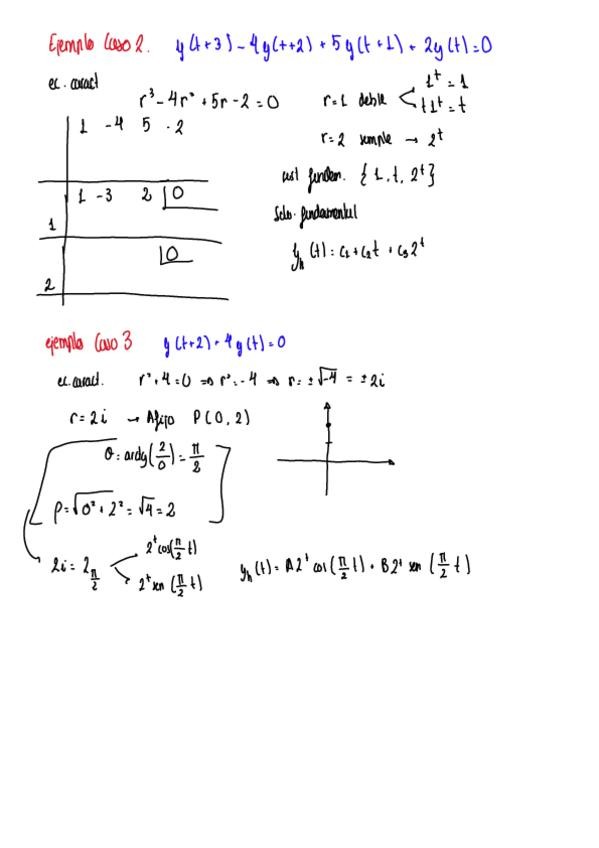 Ejemplo Caso 2. y(t+3) - 4y(t+2) + 5y(t+1) + 2y(t) = 0
ec. caract
r³ - 4r² + 5r - 2 = 0
1 -4 5 -2
1 -3 2 0
1
0
2
r=1 doble
1ᵗ = 1
t1ᵗ = t
r=2 simple → 2ᵗ
fundam. {1, t, 2ᵗ}
Soluc. fundamental
yₕ(t) = c₁ + c₂t + c₃2ᵗ
ejemplo Caso 3 y(t+2) + 4y(t) = 0
ec. caract. r² + 4 = 0 ⇒ r² = -4 ⇒ r = ±√-4 = ±2i
r = 2i → Afijo P(0, 2)
θ = arctg(2/0) = π/2
ρ = √0² + 2² = √4 = 2
2i = 2 π/2
2ᵗ cos(π/2 t)
2ᵗ sen(π/2 t)
yₕ(t) = A2ᵗ cos(π/2 t) + B2ᵗ sen(π/2 t)